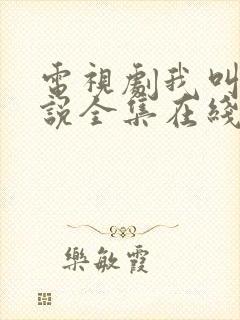 電視劇我叫
說全集在綫
樂敏霞